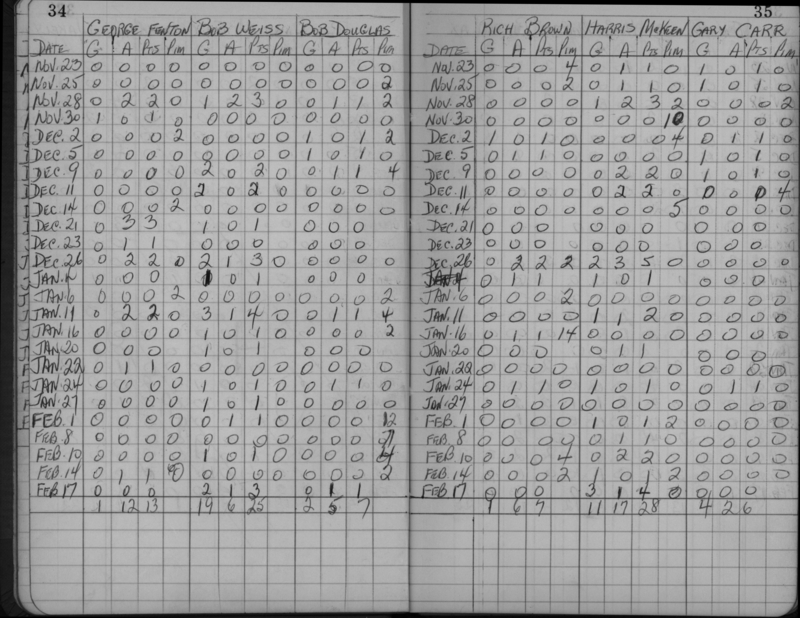 34
GEORGE FENTON BOB WEISS BOB DOUGLAS
DATE G A PTS PIM G A PTS PIM G A PTS PIM
NOV. 23 0 0 0 0 0 0 0 0 0 0 0 0
NOV. 25 0 0 0 0 0 0 0 0 0 0 0 2
NOV. 28 0 2 2 0 1 2 3 0 0 1 1 2
NOV. 30 1 0 1 0 0 0 0 0 0 0 0 0
DEC. 2 0 0 0 2 0 0 0 0 1 0 1 2
DEC. 5 0 0 0 0 0 0 0 0 1 0 1 0
DEC. 9 0 0 0 0 2 0 2 0 0 1 1 4
DEC. 11 0 0 0 0 2 0 2 0 0 0 0 0
DEC. 14 0 0 0 2 0 0 0 0 0 0 0 0
DEC. 21 0 3 3 1 0 1 0 0 0
DEC. 23 0 1 1 0 0 0 0 0 0
DEC. 26 0 2 2 0 2 1 3 0 0 0 0 0
JAN. 0 0 0 1 0 1 0 0 0
JAN. 6 0 0 0 2 0 0 0 0 0 0 0 2
JAN. 11 0 2 2 0 3 1 4 0 0 1 1 4
JAN. 16 0 0 0 0 1 0 1 0 0 0 0 2
JAN. 20 0 0 0 1 0 1 0 0 0
JAN. 22 0 1 1 0 0 0 0 0 0 0 0 0
JAN. 24 0 0 0 0 1 0 1 0 0 1 1 0
JAN. 27 0 0 0 0 1 0 1 0 0 0 0 0
FEB. 1 0 0 0 0 0 1 1 0 0 0 0 12
FEB. 8 0 0 0 0 0 0 0 0 0 0 0
FEB. 10 0 0 0 0 1 0 1 0 0 0 0 4
FEB. 14 0 1 1 0 0 0 0 0 0 0 2
FEB 17 0 0 0 2 1 3 0 1 1
1 12 13 19 6 25 2 5 7
35
RICH BROWN HARRIS MCKEEN GARY CARR
DATE G A PTS PIM G A PTS PIM G A PTS PIM
NOV. 23 0 0 0 4 0 1 1 0 1 0 1 0
NOV. 25 0 0 0 2 0 1 1 0 1 0 1 0
NOV. 28 0 0 0 0 1 2 3 2 0 0 0 2
NOV. 30 0 0 0 0 0 0 0 10 0 0 0 0
DEC. 2 1 0 1 0 0 0 0 4 0 1 1 0
DEC. 5 0 1 1 0 0 0 0 0 1 0 1 0
DEC. 9 0 0 0 0 0 2 2 0 1 0 1 0
DEC. 11 0 0 0 0 0 2 2 0 0 0 0 4
DEC. 14 0 0 0 0 0 0 0 5 0 0 0 0
DEC. 21 0 0 0 0 0 0 0 0 0
DEC. 23 0 0 0 0 0 0 0 0 0
DEC. 26 0 2 2 2 2 3 5 0 0 0 0 0
JAN. 4 0 1 1 1 0 1 0 0 0
JAN. 6 0 0 0 2 0 0 0 0 0 0 0 0
JAN. 11 0 0 0 0 1 1 2 0 0 0 0 0
JAN. 16 0 1 1 14 0 0 0 0 0 0 0 0
JAN. 20 0 0 0 0 1 1 0 0 0
JAN. 22 0 0 0 0 0 0 0 0 0 0 0 0
JAN. 24 0 1 1 0 1 0 1 0 0 1 1 0
JAN. 27 0 0 0 0 0 0 0 0 0 0 0 0
FEB. 1 0 0 0 0 1 0 1 2 0 0 0 0
FEB. 8 0 0 0 0 1 1 0 0 0 0 0
FEB. 10 0 0 0 4 0 2 2 0 0 0 0 0
FEB. 14 0 0 0 2 1 0 1 2 0 0 0 0
FEB. 17 0 0 0 3 1 4 0 0 0 0
1 6 7 11 17 28 4 2 6